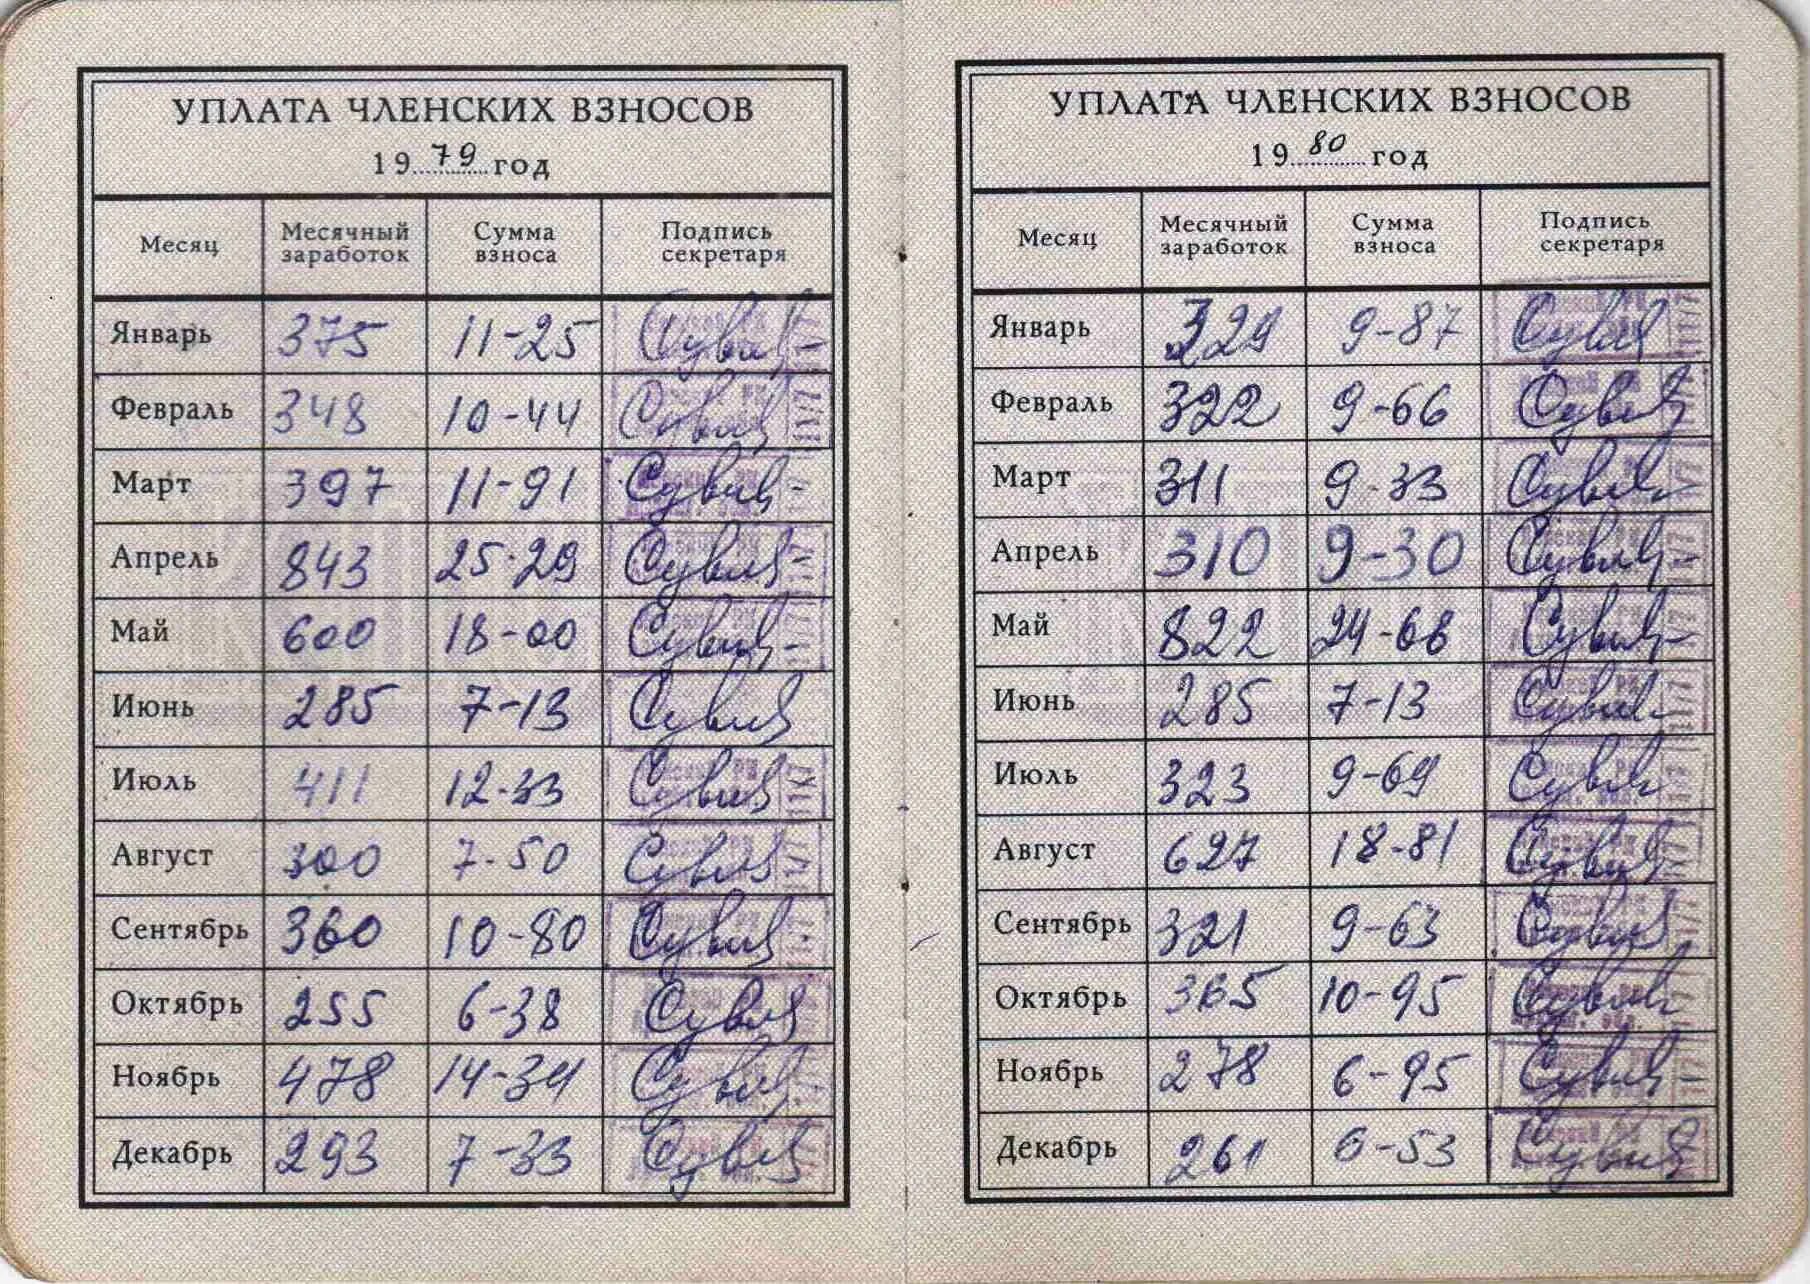 УПЛАТА ЧЛЕНСКИХ ВЗНОСОВ
1979 год
Месяц Месячный заработок Сумма взноса Подпись секретаря
Январь 375 11-25
Февраль 348 10-44
Март 397 11-91
Апрель 843 25-29
Май 600 18-00
Июнь 285 7-13
Июль 411 12-33
Август 300 7-50
Сентябрь 360 10-80
Октябрь 255 6-38
Ноябрь 478 14-34
Декабрь 293 7-33
УПЛАТА ЧЛЕНСКИХ ВЗНОСОВ
1980 год
Месяц Месячный заработок Сумма взноса Подпись секретаря
Январь 329 9-87
Февраль 322 9-66
Март 311 9-33
Апрель 310 9-30
Май 822 24-66
Июнь 285 7-13
Июль 323 9-69
Август 627 18-81
Сентябрь 321 9-63
Октябрь 365 10-95
Ноябрь 278 6-95
Декабрь 261 6-53